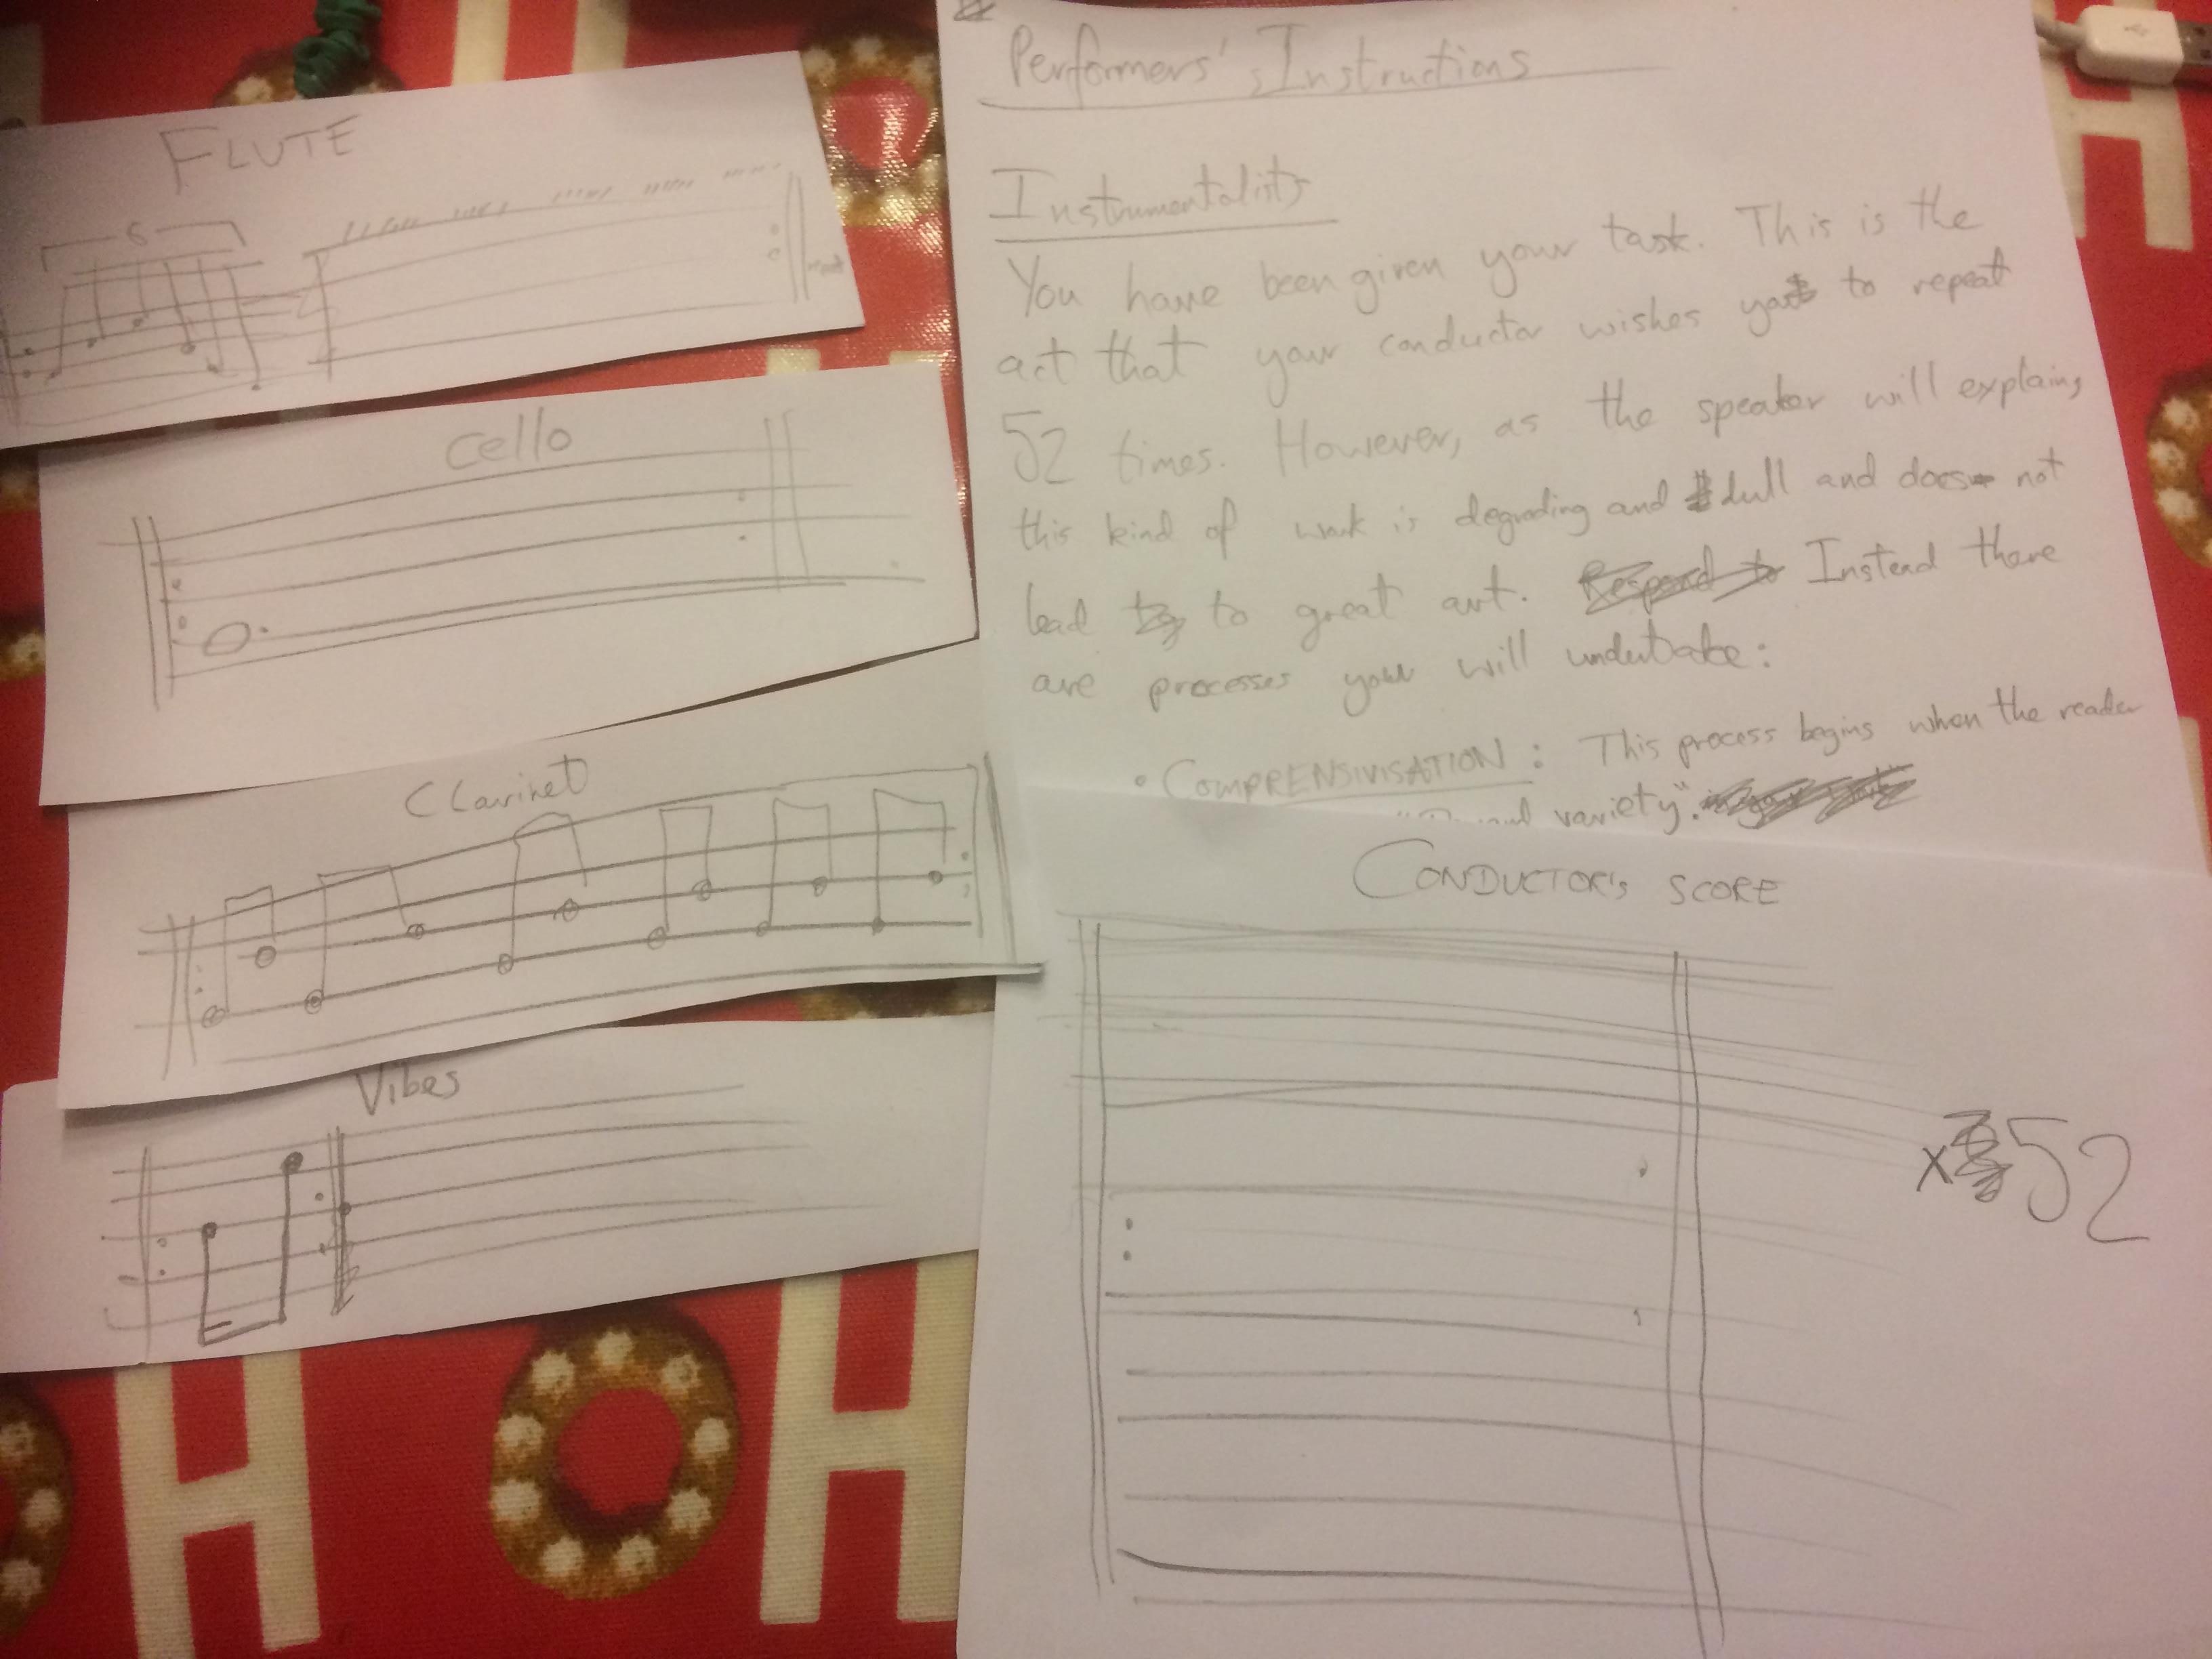 FLUTE
6
repeat
Cello
Clarinet
Vibes
Performers' Instructions
Instrumentalists
You have been given your task. This is the
act that your conductor wishes you to repeat
52 times. However, as the speaker will explain,
this kind of work is degrading and dull and does not
lead to great art. Instead there
are processes your will undertake:
• COMPRENSIVISATION: This process begins when the reader
and variety".
CONDUCTOR'S SCORE
x 52
H
OH